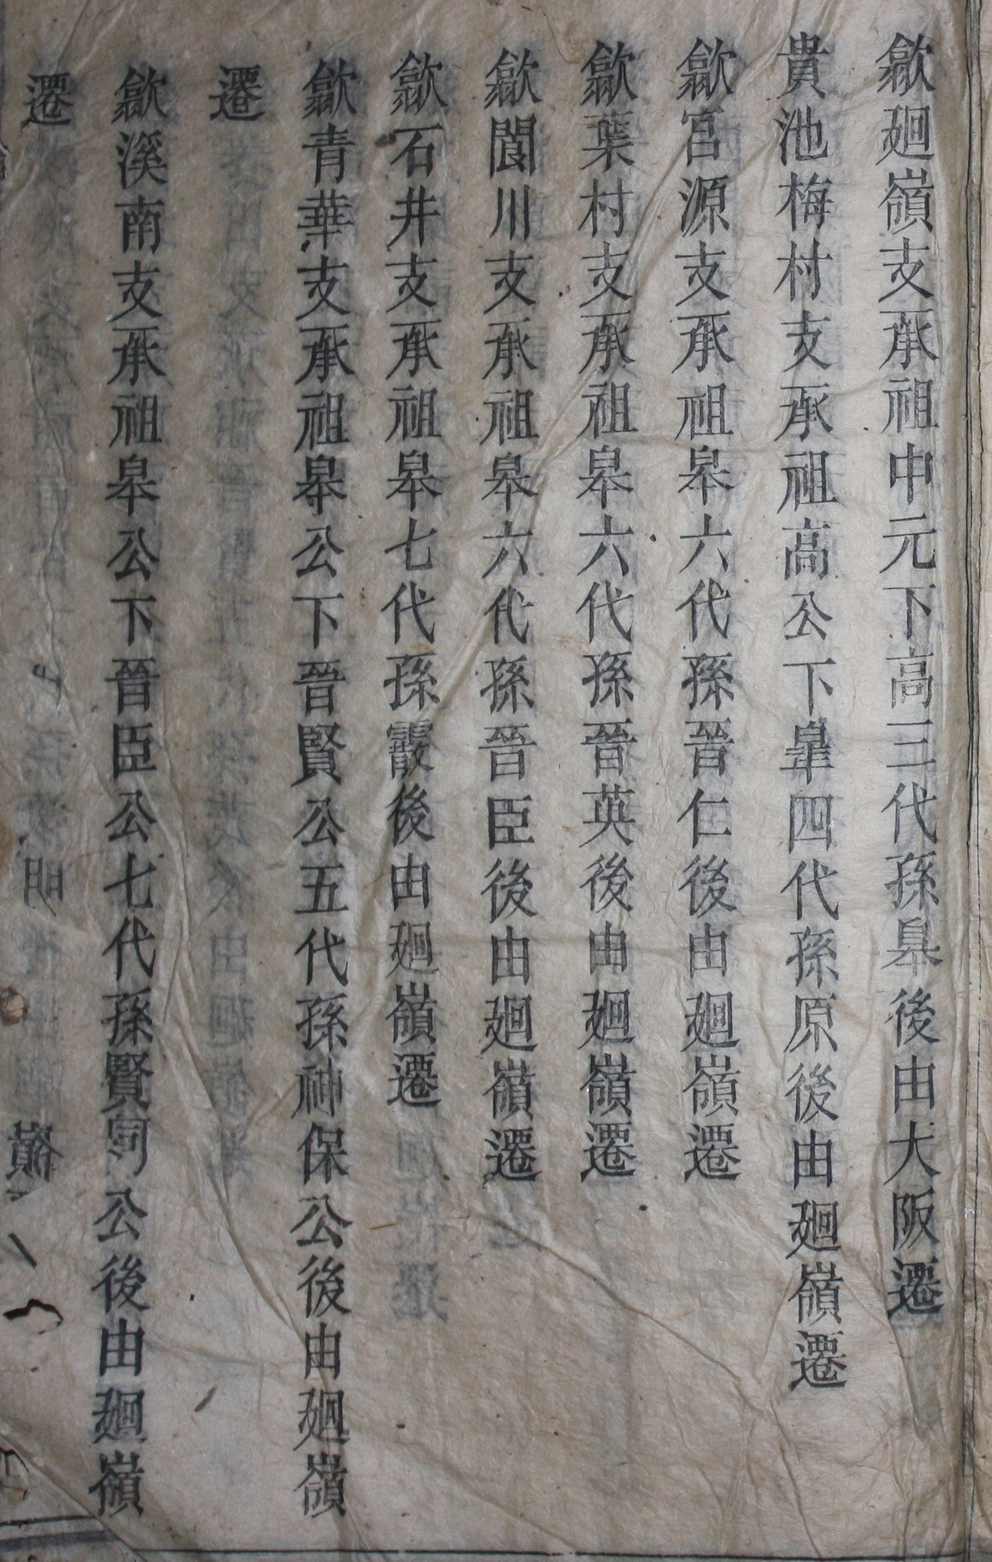 歙廻嶺支承祖申元下高三代孫臯後由大阪遷
貴池梅村支承祖高公下臯四代孫原後由廻嶺遷
歙宮源支承祖皋六代孫晉仁後由廻嶺遷
歙葉村支承祖皋六代孫晉英後由廻嶺遷
歙閬川支承祖皋六代孫晉臣後由廻嶺遷
歙石井支承祖皋七代孫霞後由廻嶺遷
歙青華支承祖皋公下晉賢公五代孫神保公後由廻嶺
遷
歙溪南支承祖皋公下晉臣公七代孫賢公後由廻嶺
遷